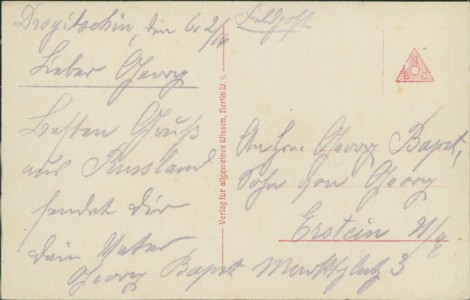 Drogitschin, den 6. 2/16
Feldpost
Lieber Georg
Besten Gruß
aus Russland
sendet dir
dein Vater
Georg Bapst
Verlag für allgemeines Wissen, Berlin W. 9.
An Hrn. Georg Bapst,
Sohn von Georg
Erstein U/E
Marktplatz 3